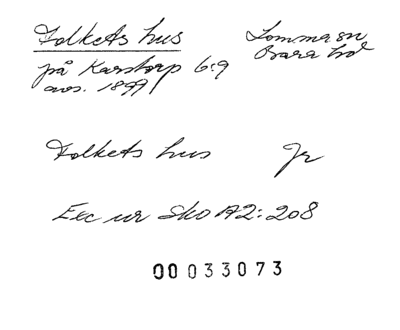 Folkets hus Lomma sn
Bara hd
på Karstorp 6:9
avs. 1899
Folkets hus Jr
Exc ur Sko A2:208
00033073